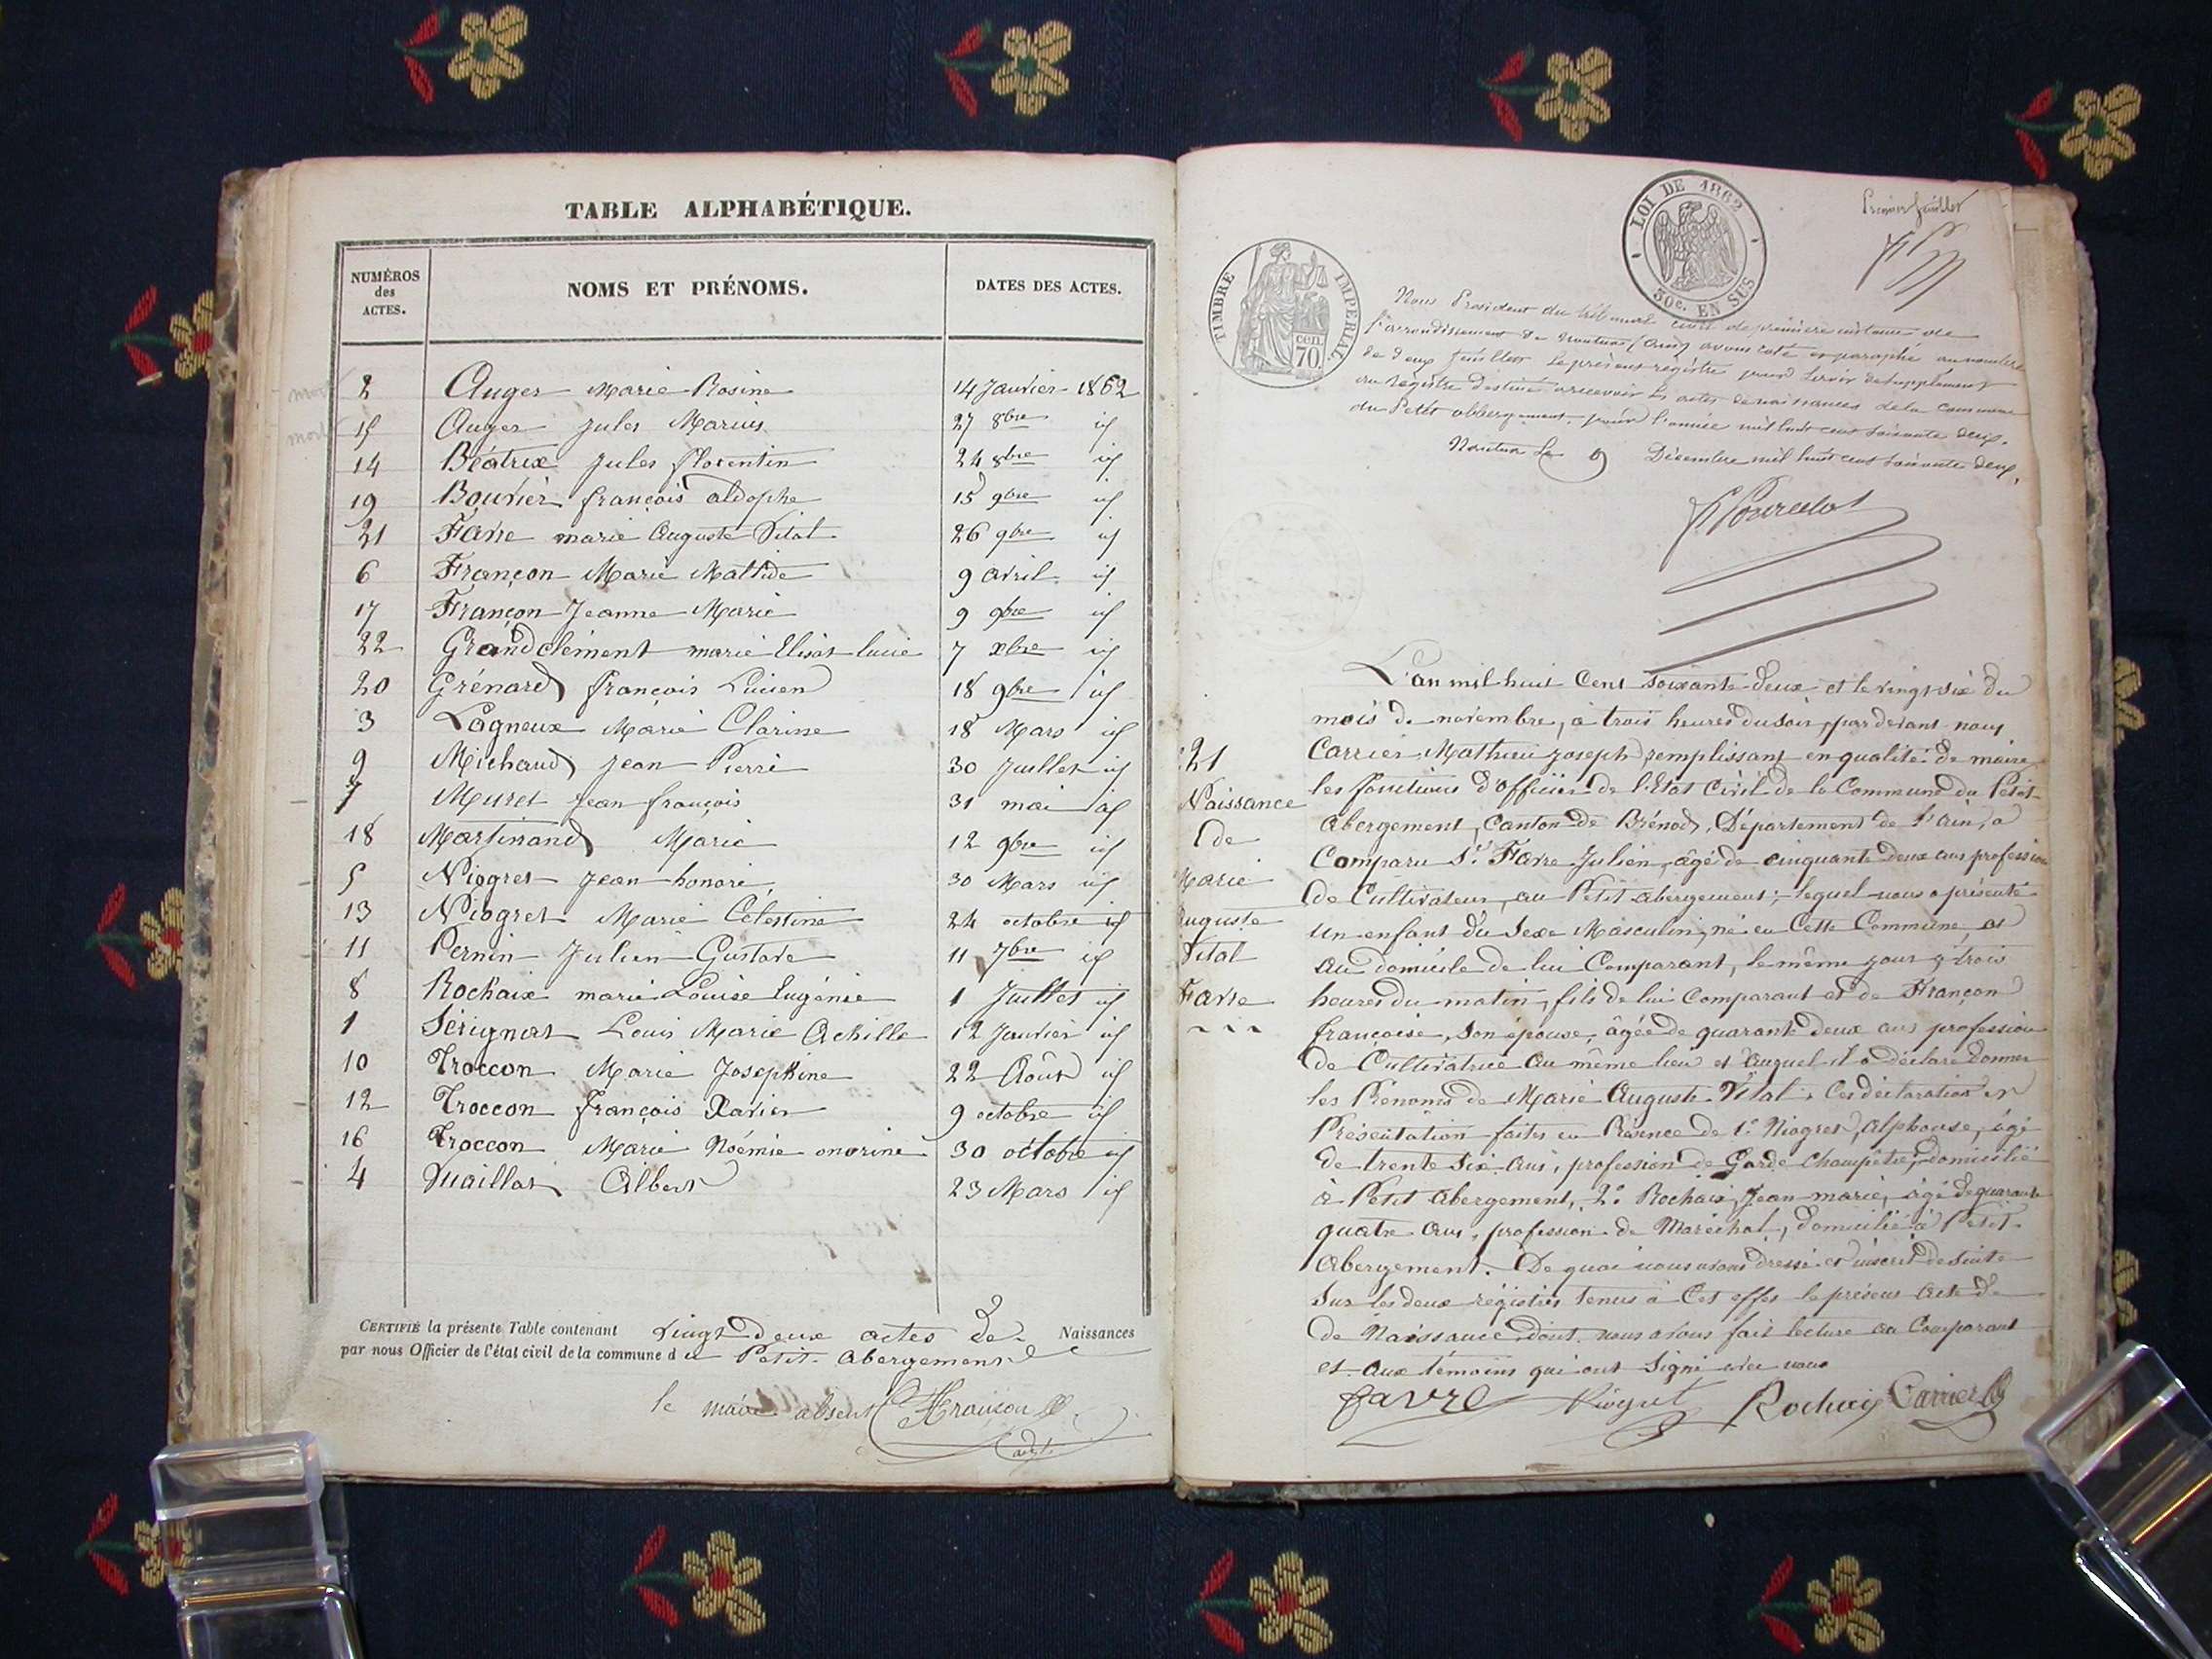 TABLE ALPHABÉTIQUE.
NUMÉROS des ACTES. NOMS ET PRÉNOMS. DATES DES ACTES.
2 Auger Marie Rosine 14 Janvier 1862
15 Auger Jules Marius 27 8bre id
14 Béatrix Jules florentin 24 8bre id
19 Bouvier françois aldophe 15 9bre id
21 Favre marie Auguste Vital 26 9bre id
6 Françon Marie Mathide 9 avril id
17 Françon Jeanne Marie 9 9bre id
22 Grandclément marie Elisat lucie 7 xbre id
20 Grénard françois Lucien 18 9bre id
3 Lagneux Marie Clarisse 18 Mars id
9 Michaud Jean Pierre 30 Juillet id
7 Muret Jean françois 31 mai id
18 Martinand Marie 12 9bre id
5 Niogret Jean honoré 30 Mars id
13 Niogret Marie Célestine 24 octobre id
11 Pernin Julien Gustave 11 7bre id
8 Rochaix marie Louise Eugénie 1 Juillet id
1 Sérignat Louis Marie Achille 12 Janvier id
10 Troccon Marie Josephine 22 Août id
12 Troccon françois Xavier 9 octobre id
16 Troccon Marie Noémie onorine 30 octobre id
4 Vuaillat Albert 23 Mars id
CERTIFIÉ la présente Table contenant vingt deux actes de Naissances
par nous Officier de l'état civil de la commune du Petit-Abergement
le maire absent Françon
adjt
Premier feuillet
LOI DE 1862
30c. EN SUS
TIMBRE IMPERIAL
70 cen.
Nous Président du tribunal civil de première instance de
l'arrondissement de Nantua (Ain) avons coté et paraphé au nombre
de deux feuillets le présent registre pour servir de supplément
au registre destiné à recevoir les actes de naissances de la commune
du Petit abbergement pour l'année mil huit cent soixante deux.
Nantua le 9 Décembre mil huit cent soixante deux,
21
Naissance
de
Marie
Auguste
Vital
Favre
L'an mil huit Cent Soixante-deux et le vingt-six du
mois de novembre, à trois heures du soir, par devant nous
Carrier Mathieu Joseph remplissant en qualité de maire
les fonctions d'officier de l'Etat Civil de la Commune du Petit-
Abergement, Canton de Brénod, Département de l'Ain, a
Comparu Sr. Favre Julien, âgé de cinquante deux ans profession
de Cultivateur, au Petit-Abergement; lequel nous a présenté
un enfant du Sexe Masculin, né en Cette Commune, et
au domicile de lui Comparant, le même jour à trois
heures du matin, fils de lui Comparant et de Françon
françoise, son épouse, âgée de quarante deux ans profession
de Cultivatrice au même lieu et auquel il a déclaré donner
les Prénoms de Marie Auguste Vital, Ces déclaration et
Présentation faites en Présence de 1° Niogret, Alphonse, âgé
de trente six ans, profession de Garde Champêtre, domicilié
à Petit Abergement, 2° Rochaix, Jean-marie, âgé de quarante
quatre ans, profession de Maréchal, domicilié à Petit-
Abergement. De quoi nous avons dressé et inscrit de suite
Sur les deux registres tenus à Cet effet le présent acte de
de Naissance dont nous avons fait lecture au Comparant
et aux témoins qui ont Signé avec nous
favre Niogret Rochaix Carrier